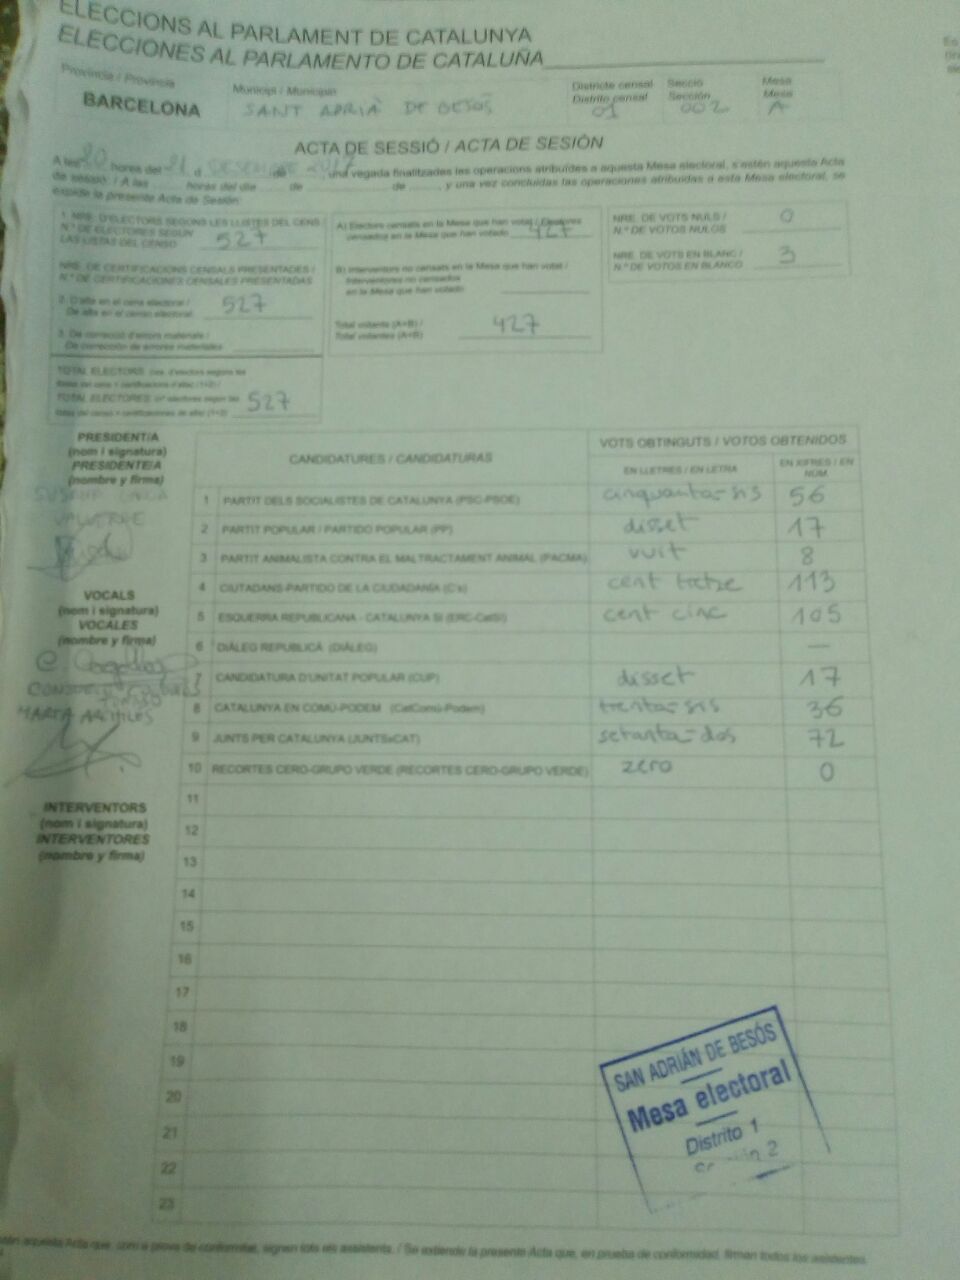 ELECCIONS AL PARLAMENT DE CATALUNYA
ELECCIONES AL PARLAMENTO DE CATALUÑA
Província / Provincia
BARCELONA
Municipi / Municipio
SANT ADRIÀ DE BESÒS
Districte censal
Distrito censal
01
Secció
Sección
002
Mesa
Mesa
A
ACTA DE SESSIÓ / ACTA DE SESIÓN
A les 20 hores del 21 d DESEMBRE de 2017, una vegada finalitzades les operacions atribuïdes a aquesta Mesa electoral, s'estén aquesta Acta
de sessió. / A las ...... horas del día ...... de ...... de ......, y una vez concluidas las operaciones atribuidas a esta Mesa electoral, se
expide la presente Acta de Sesión:
1. NRE. D'ELECTORS SEGONS LES LLISTES DEL CENS
N.º DE ELECTORES SEGÚN
LAS LISTAS DEL CENSO 527
NRE. DE CERTIFICACIONS CENSALS PRESENTADES /
N.º DE CERTIFICACIONES CENSALES PRESENTADAS
2. D'alta en el cens electoral /
De alta en el censo electoral 527
3. De correcció d'errors materials /
De corrección de errores materiales
TOTAL ELECTORS (nre. d'electors segons les
llistes del cens + certificacions d'alta) (1+2) /
TOTAL ELECTORES (nº electores según las
listas del censo + certificaciones de alta) (1+2) 527
A) Electors censats en la Mesa que han votat / Electores
censados en la Mesa que han votado 427
B) Interventors no censats en la Mesa que han votat /
Interventores no censados
en la Mesa que han votado
Total votants (A+B) /
Total votantes (A+B) 427
NRE. DE VOTS NULS /
N.º DE VOTOS NULOS 0
NRE. DE VOTS EN BLANC /
N.º DE VOTOS EN BLANCO 3
PRESIDENT/A
(nom i signatura)
PRESIDENTE/A
(nombre y firma)
VALVERDE
VOCALS
(nom i signatura)
VOCALES
(nombre y firma)
MARTA
INTERVENTORS
(nom i signatura)
INTERVENTORES
(nombre y firma)
CANDIDATURES / CANDIDATURAS
VOTS OBTINGUTS / VOTOS OBTENIDOS
EN LLETRES / EN LETRA
EN XIFRES / EN NÚM.
1 PARTIT DELS SOCIALISTES DE CATALUNYA (PSC-PSOE) cinquanta-sis 56
2 PARTIT POPULAR / PARTIDO POPULAR (PP) disset 17
3 PARTIT ANIMALISTA CONTRA EL MALTRACTAMENT ANIMAL (PACMA) vuit 8
4 CIUTADANS-PARTIDO DE LA CIUDADANÍA (C's) cent tretze 113
5 ESQUERRA REPUBLICANA - CATALUNYA SÍ (ERC-CatSí) cent cinc 105
6 DIÀLEG REPUBLICÀ (DIÀLEG) —
7 CANDIDATURA D'UNITAT POPULAR (CUP) disset 17
8 CATALUNYA EN COMÚ-PODEM (CatComú-Podem) trenta-sis 36
9 JUNTS PER CATALUNYA (JUNTSxCAT) setanta-dos 72
10 RECORTES CERO-GRUPO VERDE (RECORTES CERO-GRUPO VERDE) zero 0
11
12
13
14
15
16
17
18
19
20
21
22
23
SAN ADRIÁN DE BESÓS
Mesa electoral
Distrito 1
2
aquesta Acta que, com a prova de conformitat, signen tots els assistents. / Se extiende la presente Acta que, en prueba de conformidad, firman todos los asistentes.